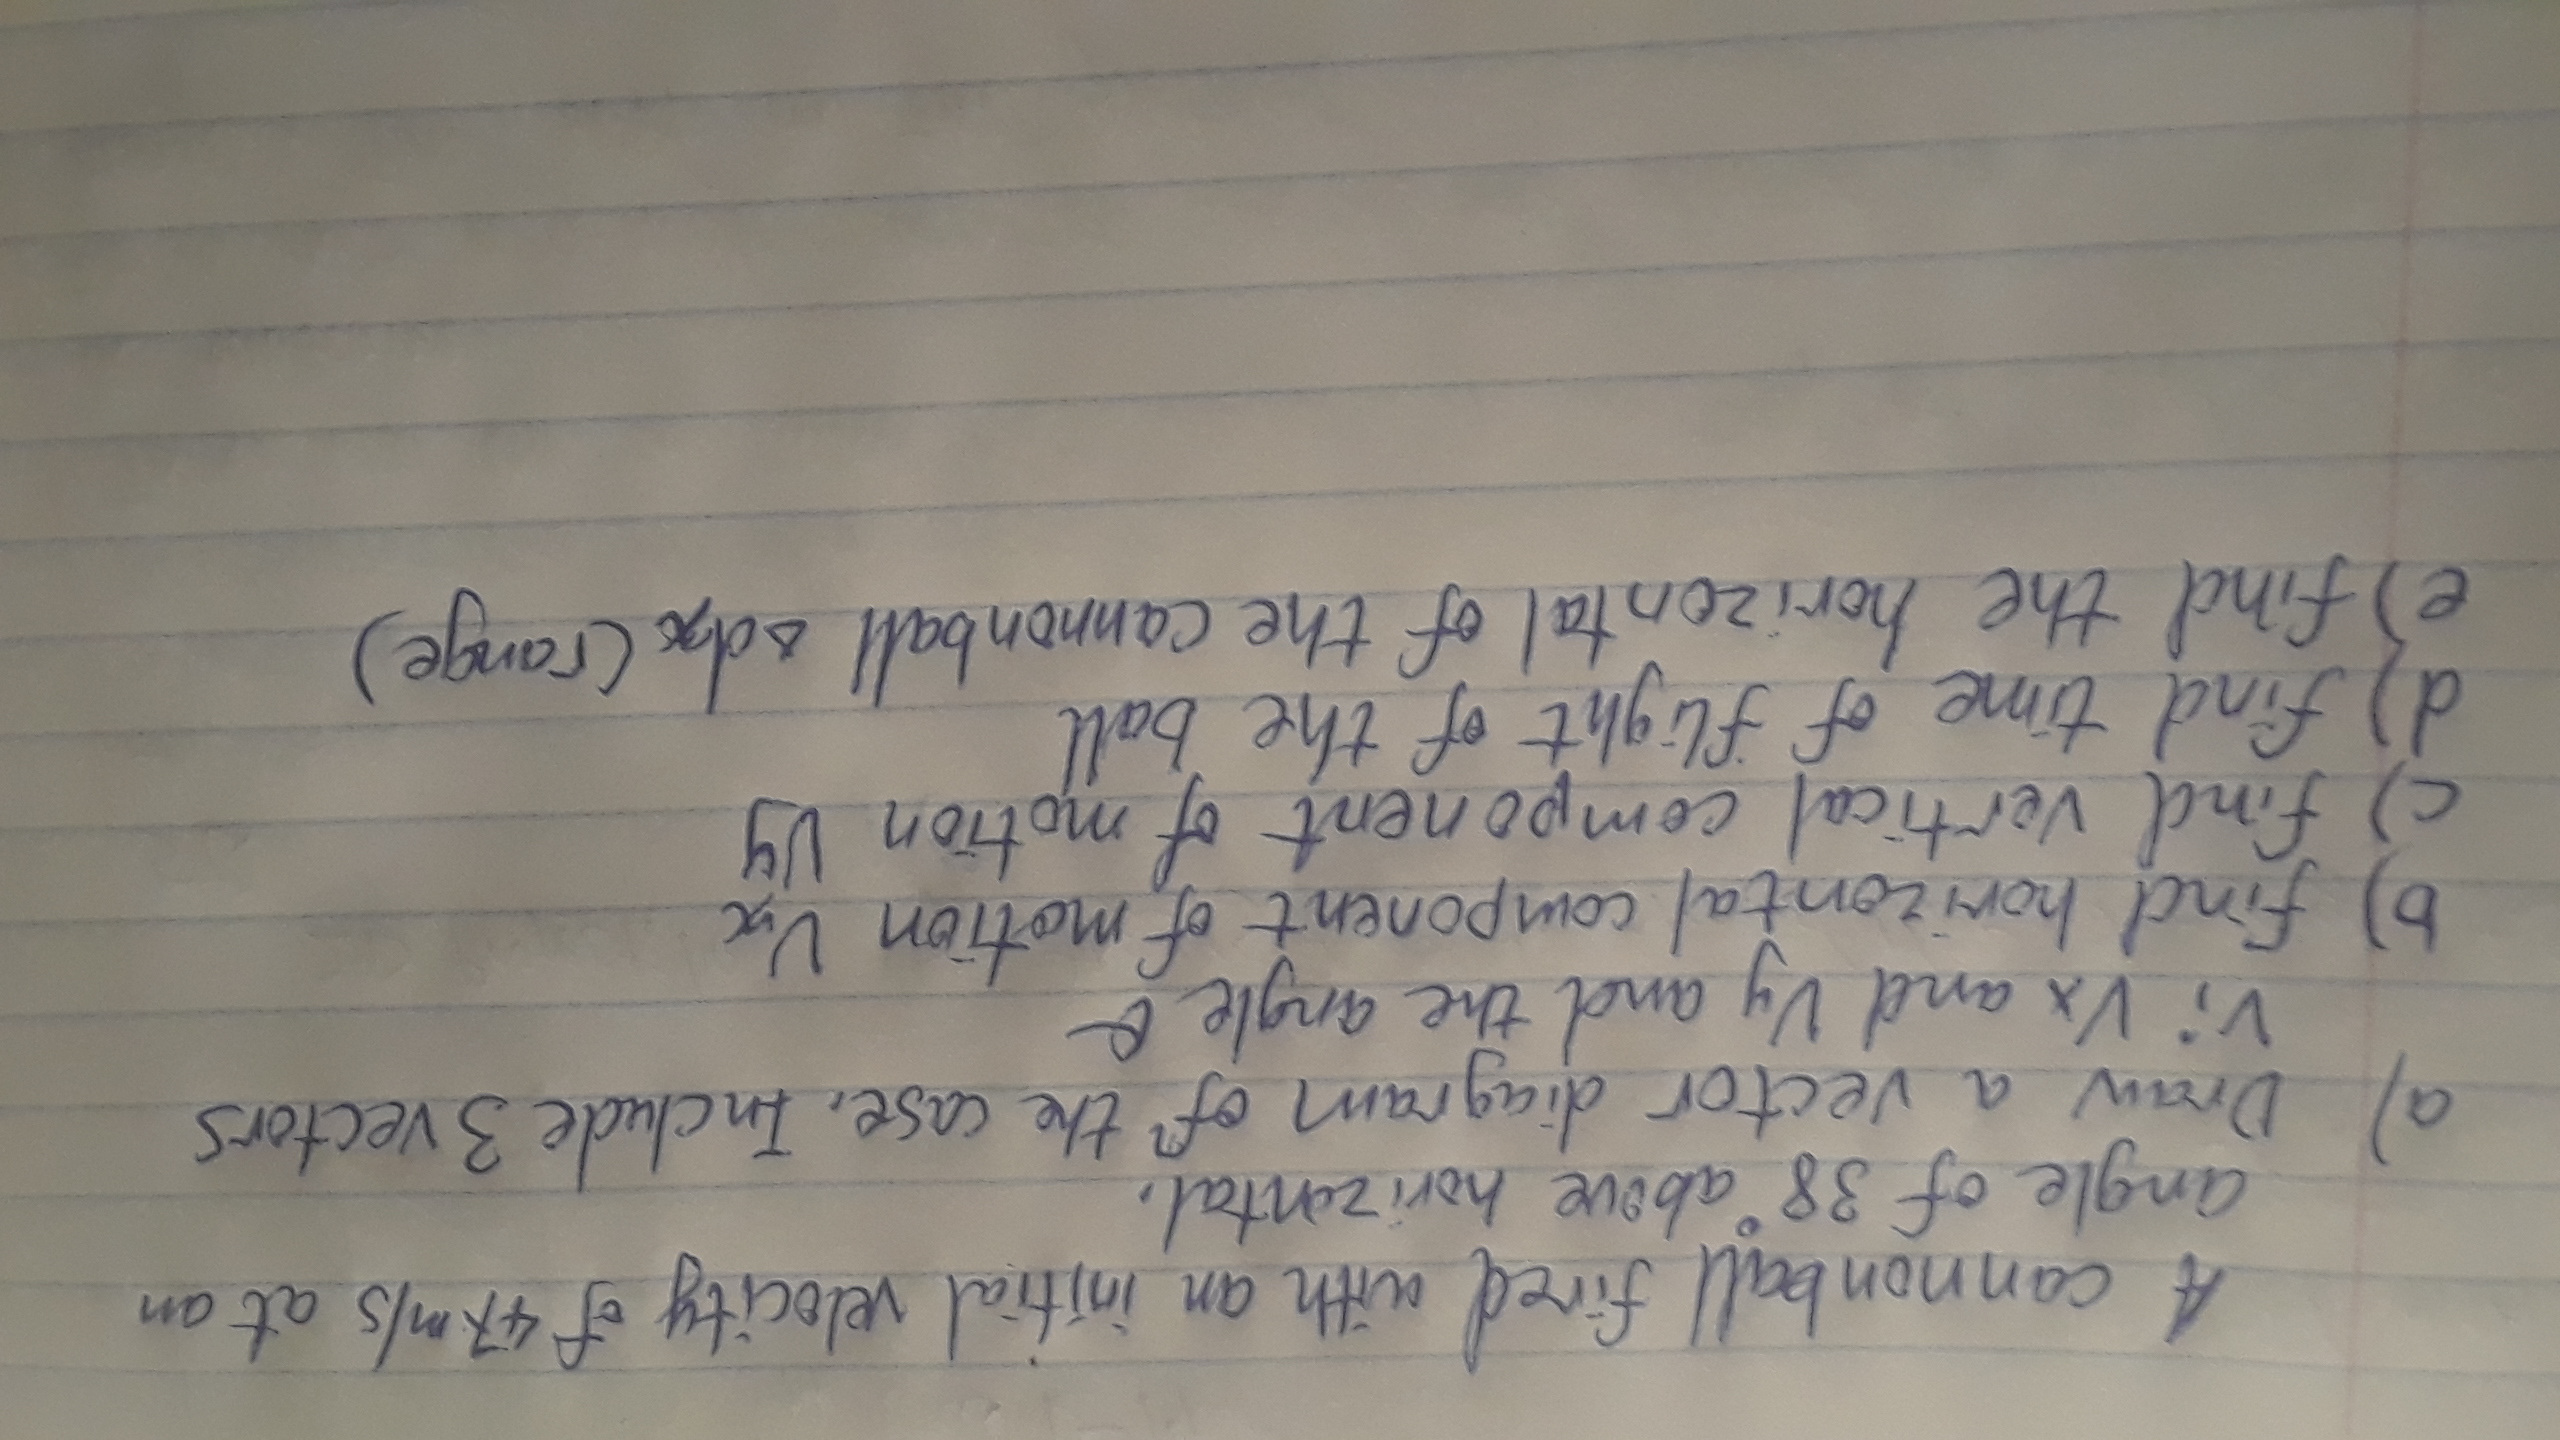 A cannonball fired with an initial velocity of 47m/s at an
angle of 38° above horizontal.
a) Draw a vector diagram of the case. Include 3 vectors
Vi Vx and Vy and the angle θ
b) find horizontal component of motion Vx
c) find vertical component of motion Vy
d) find time of flight of the ball
e) find the horizontal of the cannonball △dx (range)